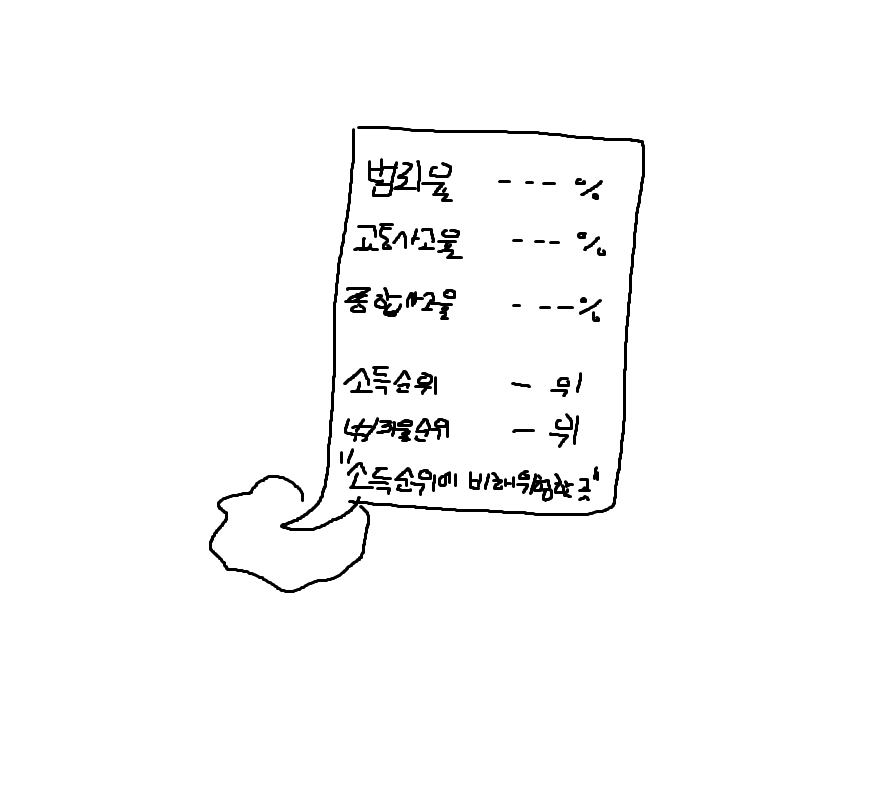 범죄율 --- %
교통사고율 --- %
종합사고율 - -- %
소득순위 - 위
범죄율순위 - 위
"소득순위에 비례위험한 곳"